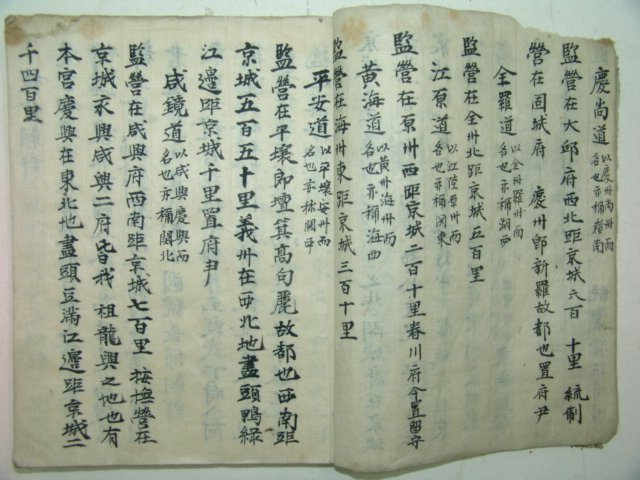 慶尚道 以慶州尚州而名也亦稱嶺南
監營在大邱府西北距京城六百 十里 統制
營在固城府 慶州卽新羅故都也置府尹
全羅道 以全州羅州而名也亦稱湖西
監營在全州北距京城五百里
江原道 以江陵原州而名也亦稱關東
監營在原州西距京城二百十里春川府今置留守
黃海道 以黃州海州而名也亦稱海西
監營在海州東距京城三百十里
平安道 以平壤安州而名也亦稱關西
監營在平壤即壇箕高句麗故都也西南距
京城五百五十里義州在西北地盡頭鴨綠
江邊距京城千里置府尹
咸鏡道 以咸興慶興而名也亦稱關北
監營在咸興府西南距京城七百里 按撫營在
京城永興咸興二府皆我祖龍興之地也有
本宮慶興在東北地盡頭豆滿江邊距京城二
千四百里